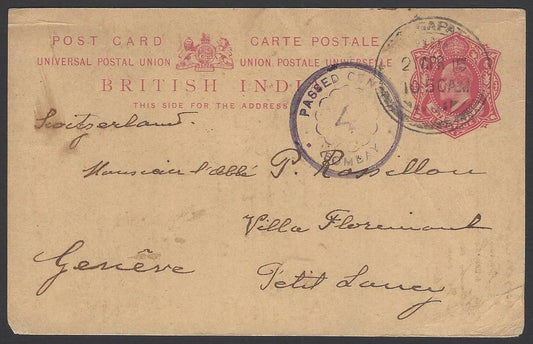 POST CARD CARTE POSTALE
UNIVERSAL POSTAL UNION UNION POSTALE UNIVERSELLE
BRITISH INDI
THIS SIDE FOR THE ADDRESS
PASSED CEN
4
BOMBAY
2 APR 15
10-50AM
Switzerland.
Monsieur l'abbé P. Rossillon
Villa Florimont
Genève Petit Lancy